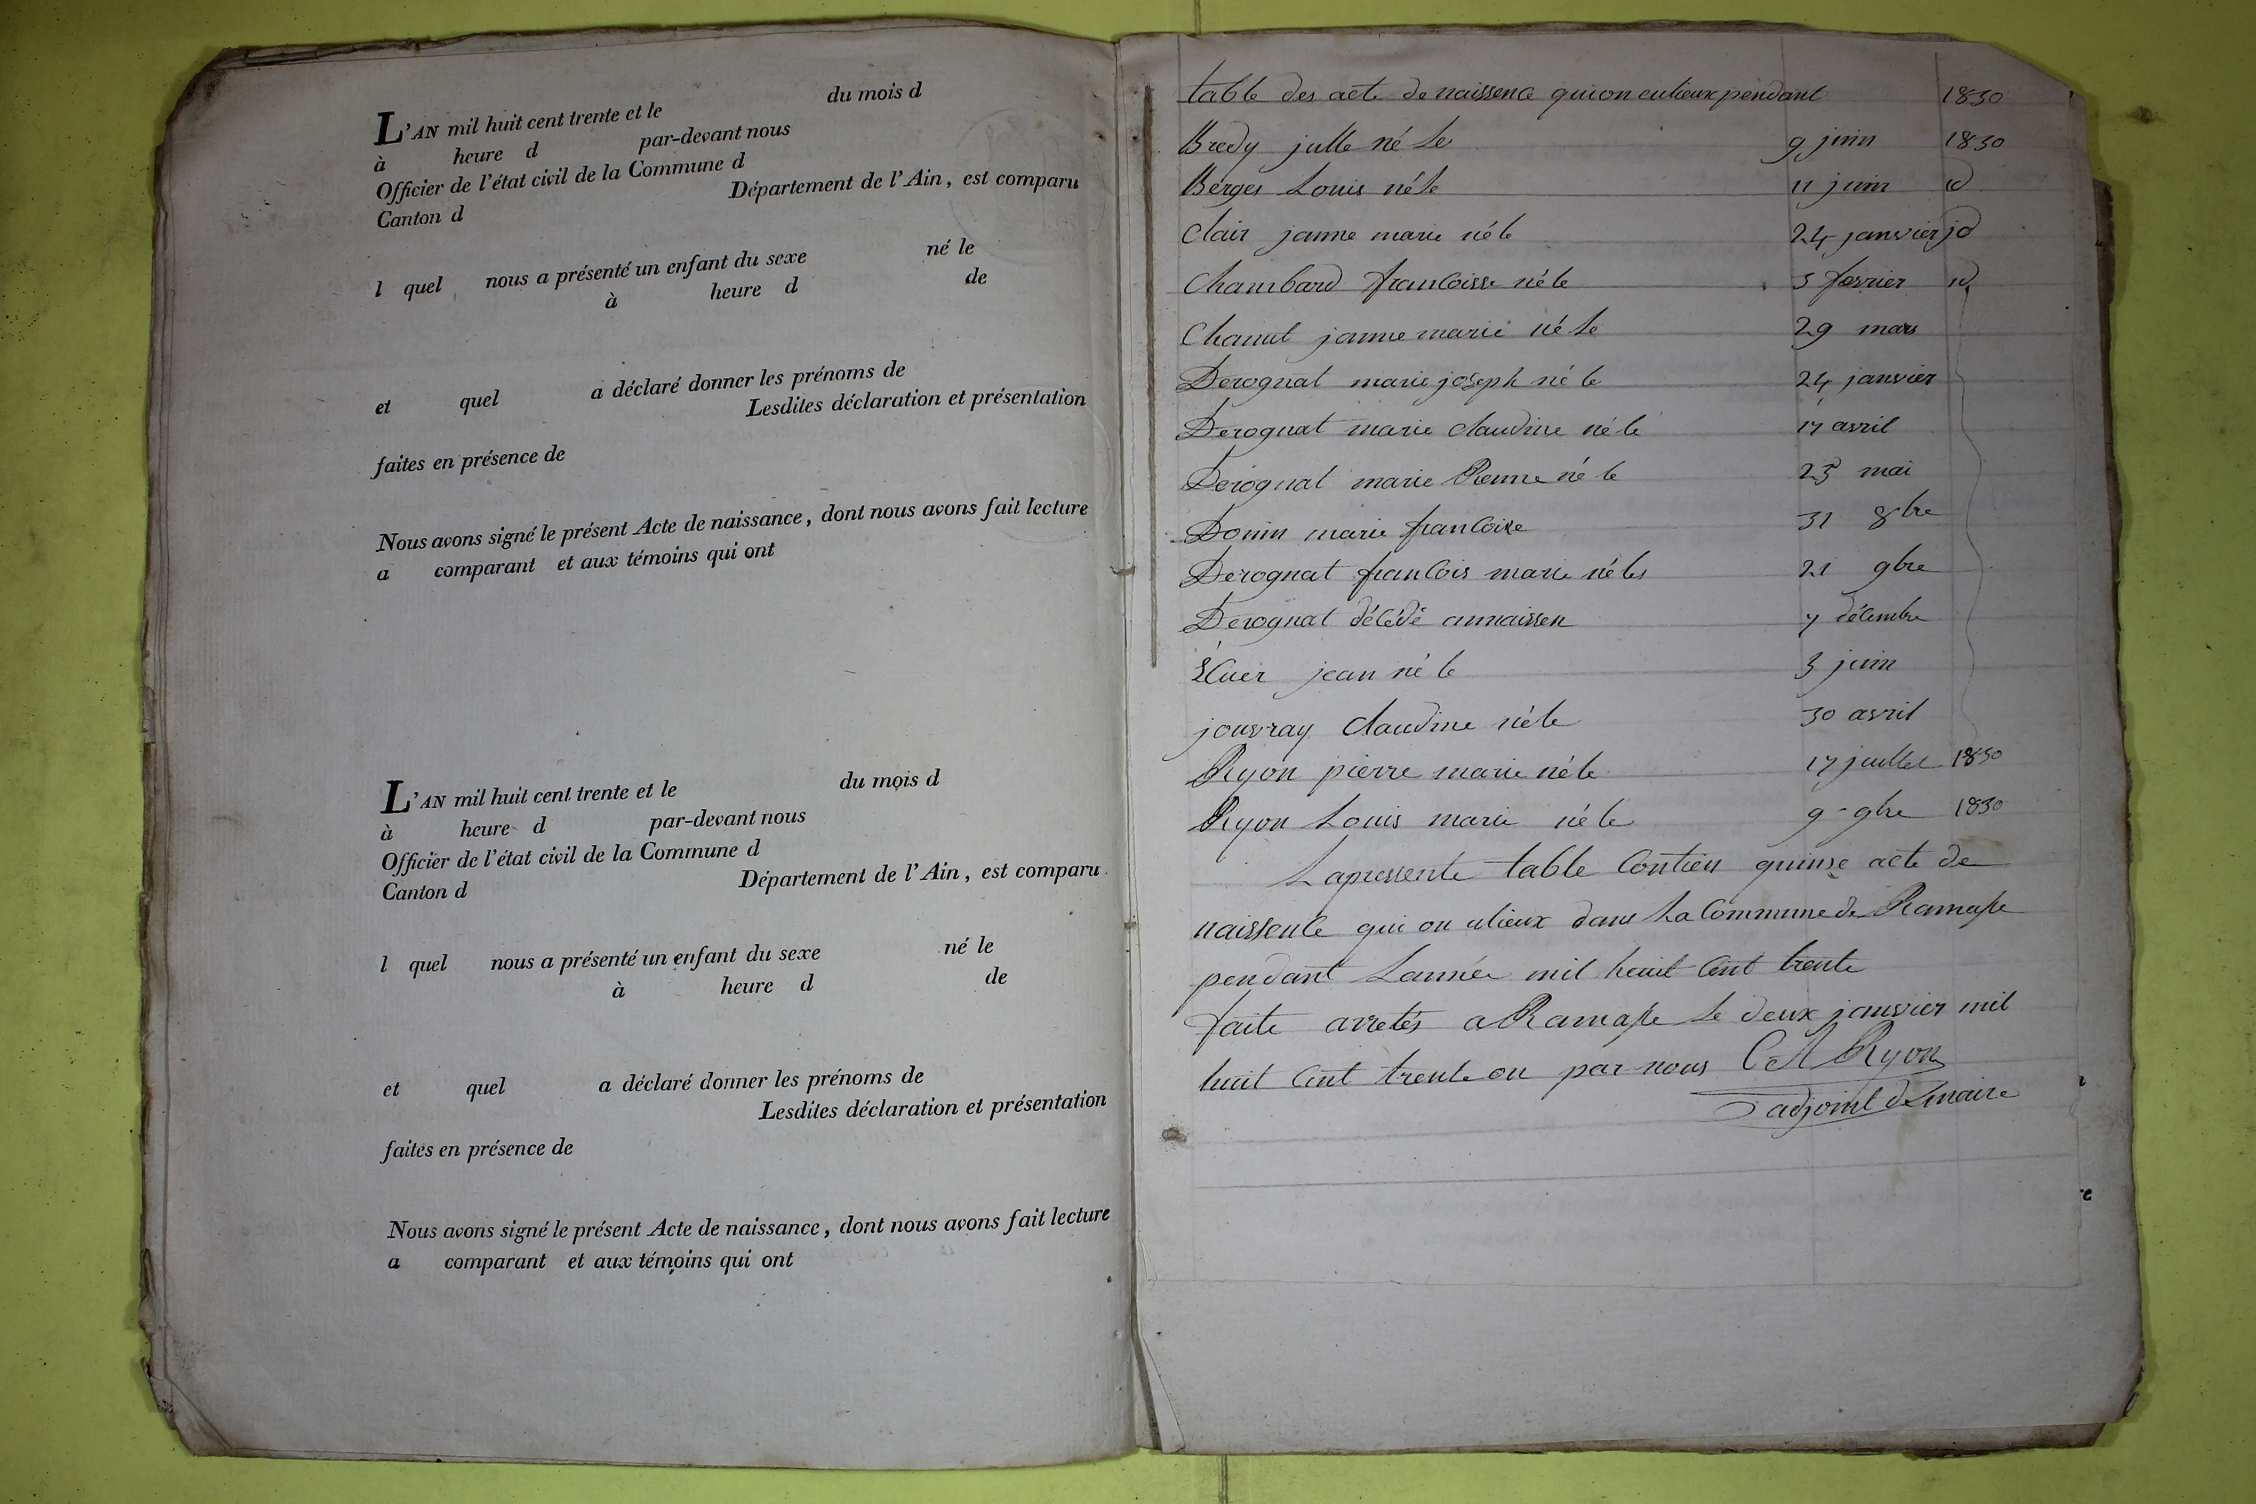 L'AN mil huit cent trente et le du mois d
à heure d par-devant nous
Officier de l'état civil de la Commune d
Canton d Département de l'Ain, est comparu
l quel nous a présenté un enfant du sexe né le
à heure d de
et quel a déclaré donner les prénoms de
Lesdites déclaration et présentation
faites en présence de
Nous avons signé le présent Acte de naissance, dont nous avons fait lecture
a comparant et aux témoins qui ont
L'AN mil huit cent trente et le du mois d
à heure d par-devant nous
Officier de l'état civil de la Commune d
Canton d Département de l'Ain, est comparu
l quel nous a présenté un enfant du sexe né le
à heure d de
et quel a déclaré donner les prénoms de
Lesdites déclaration et présentation
faites en présence de
Nous avons signé le présent Acte de naissance, dont nous avons fait lecture
a comparant et aux témoins qui ont
table des acte de naissence qui on eulieux pendant 1830
Bredy julle né le 9 juin 1830
Berges Louis né le 11 juin id
Clair janne marie né le 24 janvier id
Chambard francoisse né le 5 fevrier id
Chanut janne marie né le 29 mars
Derognat marie joseph né le 24 janvier
Derognat marie claudine né le 17 avril
Derognat marie Renne né le 23 mai
Donin marie francoise 31 8bre
Derognat francois marie né les 21 9bre
Derognat décédé annaissen 7 décembre
jean né le 3 juin
jouvray Claudine né le 30 avril
Ryon pierre marie né le 17 juillet 1830
Ryon Louis marie né le 9 9bre 1830
Lapressente table Contien quinse acte de
naissence qui on ulieux dans La Commune de Ramasse
pendant Lannée mil heuit Cent trente
faite arretés a Ramasse le deux janvier mil
huit Cent trente on par nous CA Ryon
adjoint de maire